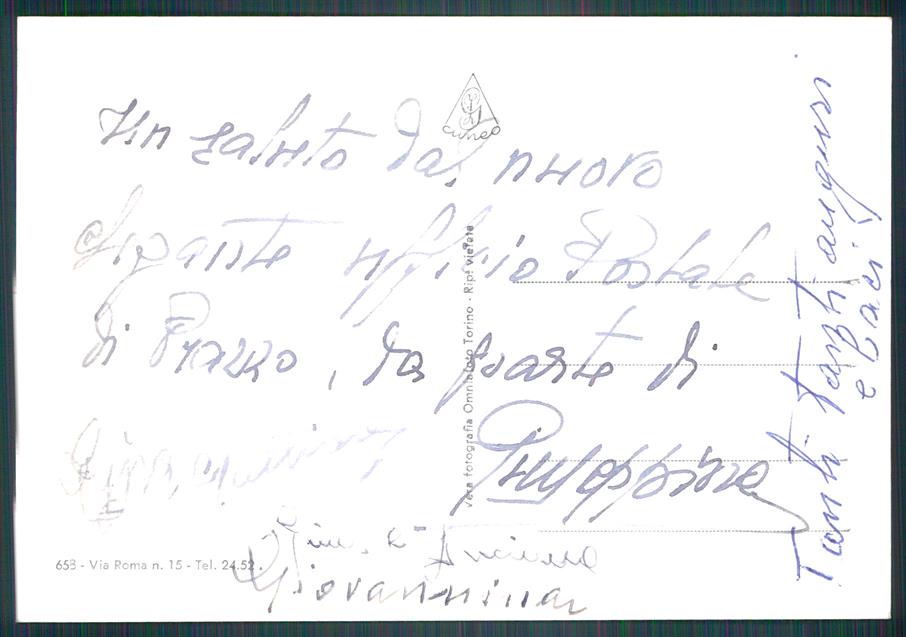 Un saluto dal nuovo
gigante ufficio Postale
di Prazzo, da parte di
Giuseppina
Luciana
Giovannina
Tanti tanti auguri
e baci
CUNEO
Vera fotografia Omniafoto Torino - Rip. vietata
658 - Via Roma n. 15 - Tel. 24.52